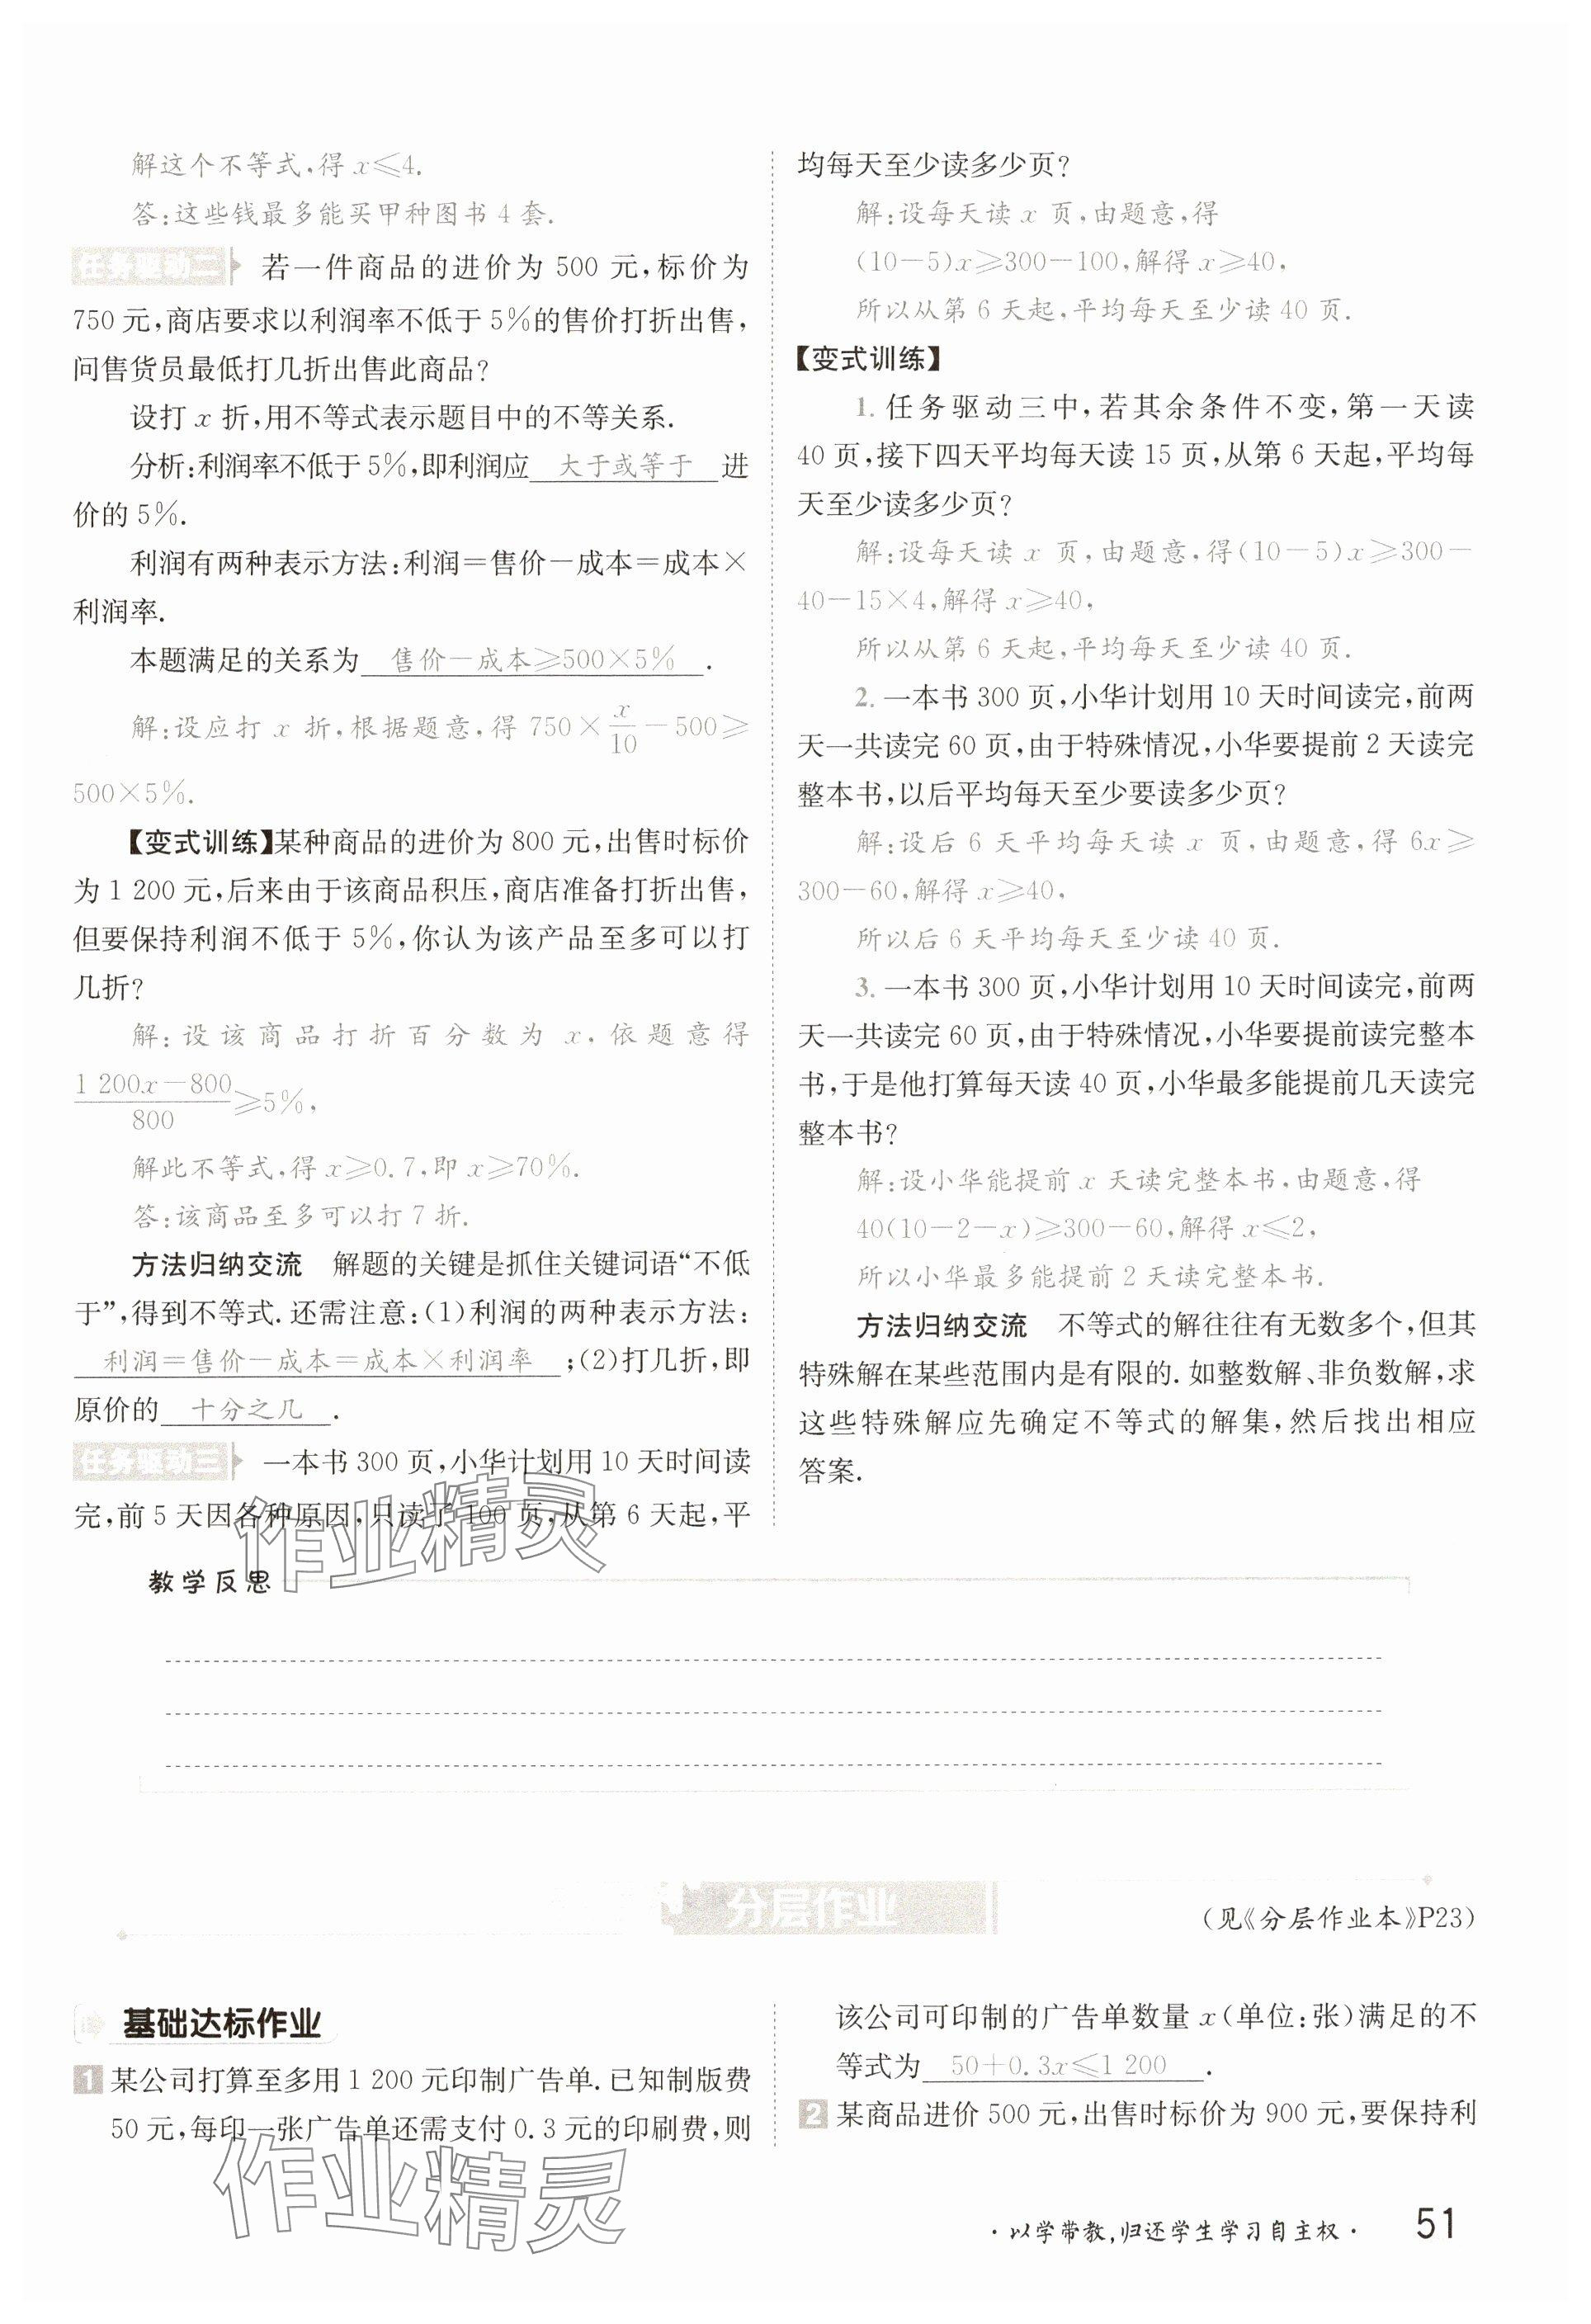 解这个不等式,得 x≤4.
答:这些钱最多能买甲种图书 4 套.
任务驱动二 若一件商品的进价为 500 元,标价为
750 元,商店要求以利润率不低于 5%的售价打折出售,
问售货员最低打几折出售此商品?
设打 x 折,用不等式表示题目中的不等关系.
分析:利润率不低于 5%,即利润应 大于或等于 进
价的 5%.
利润有两种表示方法:利润=售价-成本=成本×
利润率.
本题满足的关系为 售价-成本≥500×5% .
解:设应打 x 折,根据题意,得 750×x/10-500≥
500×5%.
【变式训练】某种商品的进价为 800 元,出售时标价
为 1 200 元,后来由于该商品积压,商店准备打折出售,
但要保持利润不低于 5%,你认为该产品至多可以打
几折?
解:设该商品打折百分数为 x,依题意得
(1 200x-800)/800≥5%,
解此不等式,得 x≥0.7,即 x≥70%.
答:该商品至多可以打 7 折.
方法归纳交流 解题的关键是抓住关键词语“不低
于”,得到不等式.还需注意:(1)利润的两种表示方法:
利润=售价-成本=成本×利润率 ;(2)打几折,即
原价的 十分之几 .
任务驱动三 一本书 300 页,小华计划用 10 天时间读
完,前 5 天因各种原因,只读了 100 页,从第 6 天起,平
均每天至少读多少页?
解:设每天读 x 页,由题意,得
(10-5)x≥300-100,解得 x≥40,
所以从第 6 天起,平均每天至少读 40 页.
【变式训练】
1. 任务驱动三中,若其余条件不变,第一天读
40 页,接下四天平均每天读 15 页,从第 6 天起,平均每
天至少读多少页?
解:设每天读 x 页,由题意,得(10-5)x≥300-
40-15×4,解得 x≥40,
所以从第 6 天起,平均每天至少读 40 页.
2. 一本书 300 页,小华计划用 10 天时间读完,前两
天一共读完 60 页,由于特殊情况,小华要提前 2 天读完
整本书,以后平均每天至少要读多少页?
解:设后 6 天平均每天读 x 页,由题意,得 6x≥
300-60,解得 x≥40,
所以后 6 天平均每天至少读 40 页.
3. 一本书 300 页,小华计划用 10 天时间读完,前两
天一共读完 60 页,由于特殊情况,小华要提前读完整本
书,于是他打算每天读 40 页,小华最多能提前几天读完
整本书?
解:设小华能提前 x 天读完整本书,由题意,得
40(10-2-x)≥300-60,解得 x≤2,
所以小华最多能提前 2 天读完整本书.
方法归纳交流 不等式的解往往有无数多个,但其
特殊解在某些范围内是有限的.如整数解、非负数解,求
这些特殊解应先确定不等式的解集,然后找出相应
答案.
作业精灵
教学反思
分层作业
(见《分层作业本》P23)
基础达标作业
1 某公司打算至多用 1 200 元印制广告单.已知制版费
50 元,每印一张广告单还需支付 0.3 元的印刷费,则
该公司可印制的广告单数量 x(单位:张)满足的不
等式为 50+0.3x≤1 200 .
2 某商品进价 500 元,出售时标价为 900 元,要保持利
作业精灵
·以学带教,归还学生学习自主权· 51